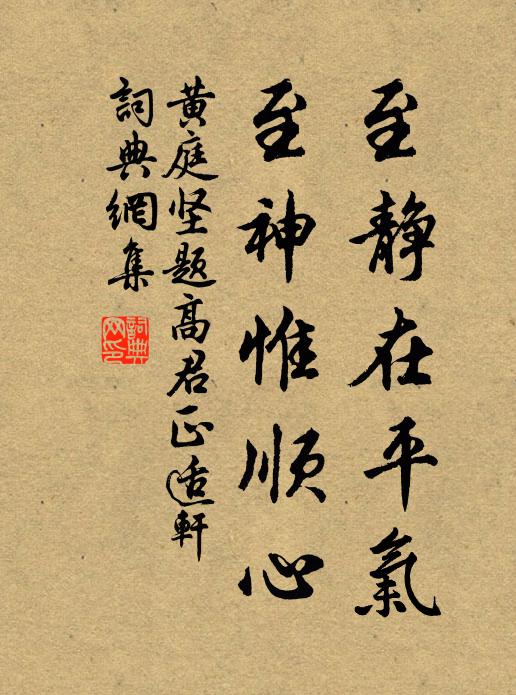 至静在平氣
至神惟順心
黄庭坚题高君正适軒
詞典網集
詞典
网印